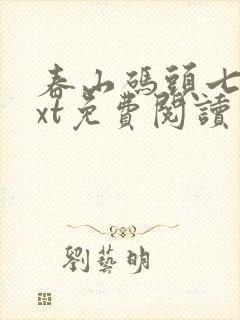 春山碼頭七
xt免費閱讀
劉藝明